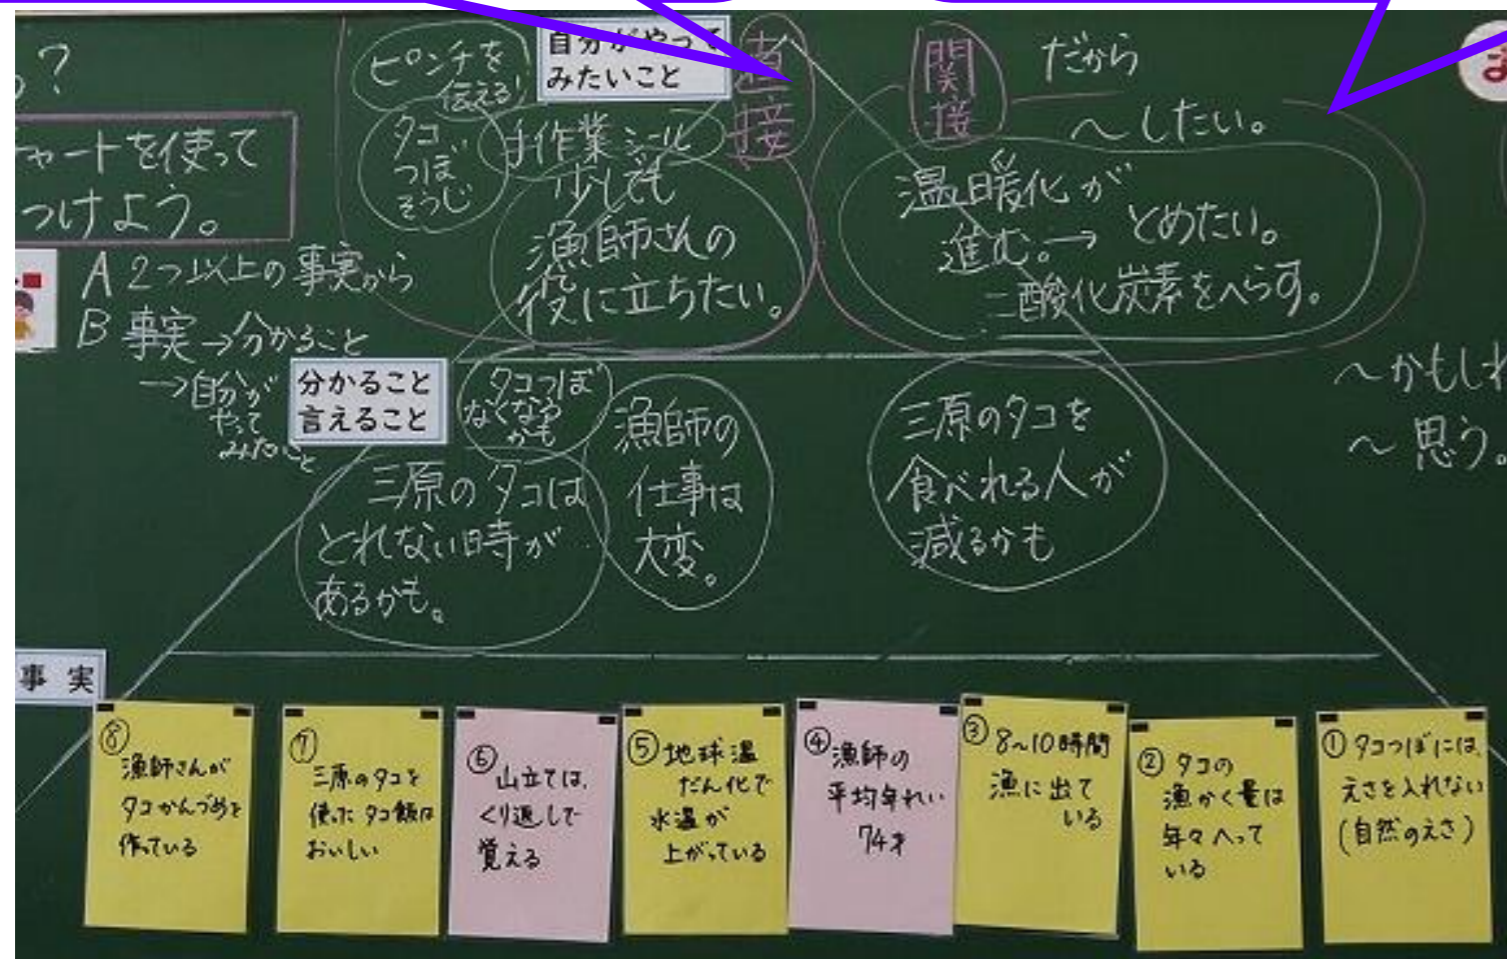 ？
チャートを使って
つけよう。
A 2つ以上の事実から
B 事実→分かること
→自分が
やって
みたいこと
自分がやって
みたいこと
ピンチを
伝える!
タコ
つぼ
そうじ
手作業シール
少しでも
漁師さんの
役に立ちたい。
直接
関接
だから
～したい。
温暖化が
進む。→とめたい。
二酸化炭素をへらす。
分かること
言えること
タコつぼ
なくなる
かも
三原のタコは
とれない時が
あるかも。
漁師の
仕事は
大変。
三原のタコを
食べれる人が
減るかも
～かもしれ
～思う。
事実
⑧
漁師さんが
タコかんづめを
作っている
⑦
三原のタコを
使ったタコ飯は
おいしい
⑥
山立ては、
くり返して
覚える
⑤地球温
だん化で
水温が
上がっている
④漁師の
平均年れい
74才
③8～10時間
漁に出て
いる
②タコの
漁かく量は
年々へって
いる
①タコつぼには、
えさを入れない
(自然のえさ)